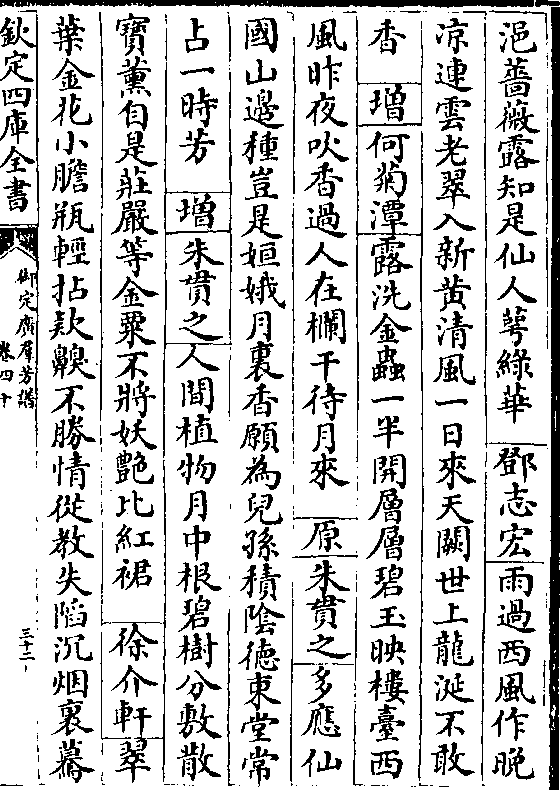 浥薔薇露知是仙人萼綠華 鄧志宏 雨過西風作晚
凉連雲老翠入新黄清風一日來天闕世上龍涎不敢
香 增 何菊潭 露洗金蟲一半開層層碧玉映樓臺西
風昨夜吹香過人在欄干待月來 原 朱貫之 多應仙
國山邊種豈是姮娥月裏香願為兒孫積陰德東堂常
占一時芳 增 朱貫之 人間植物月中根碧樹分敷散
寶薰自是莊嚴等金粟不將妖艷比紅裙 徐介軒 翠
葉金花小膽瓶輕拈欵齅不勝情從教失䧟沉烟裏驀
欽定四庫全書
御定廣羣芳譜
卷四十
三十二